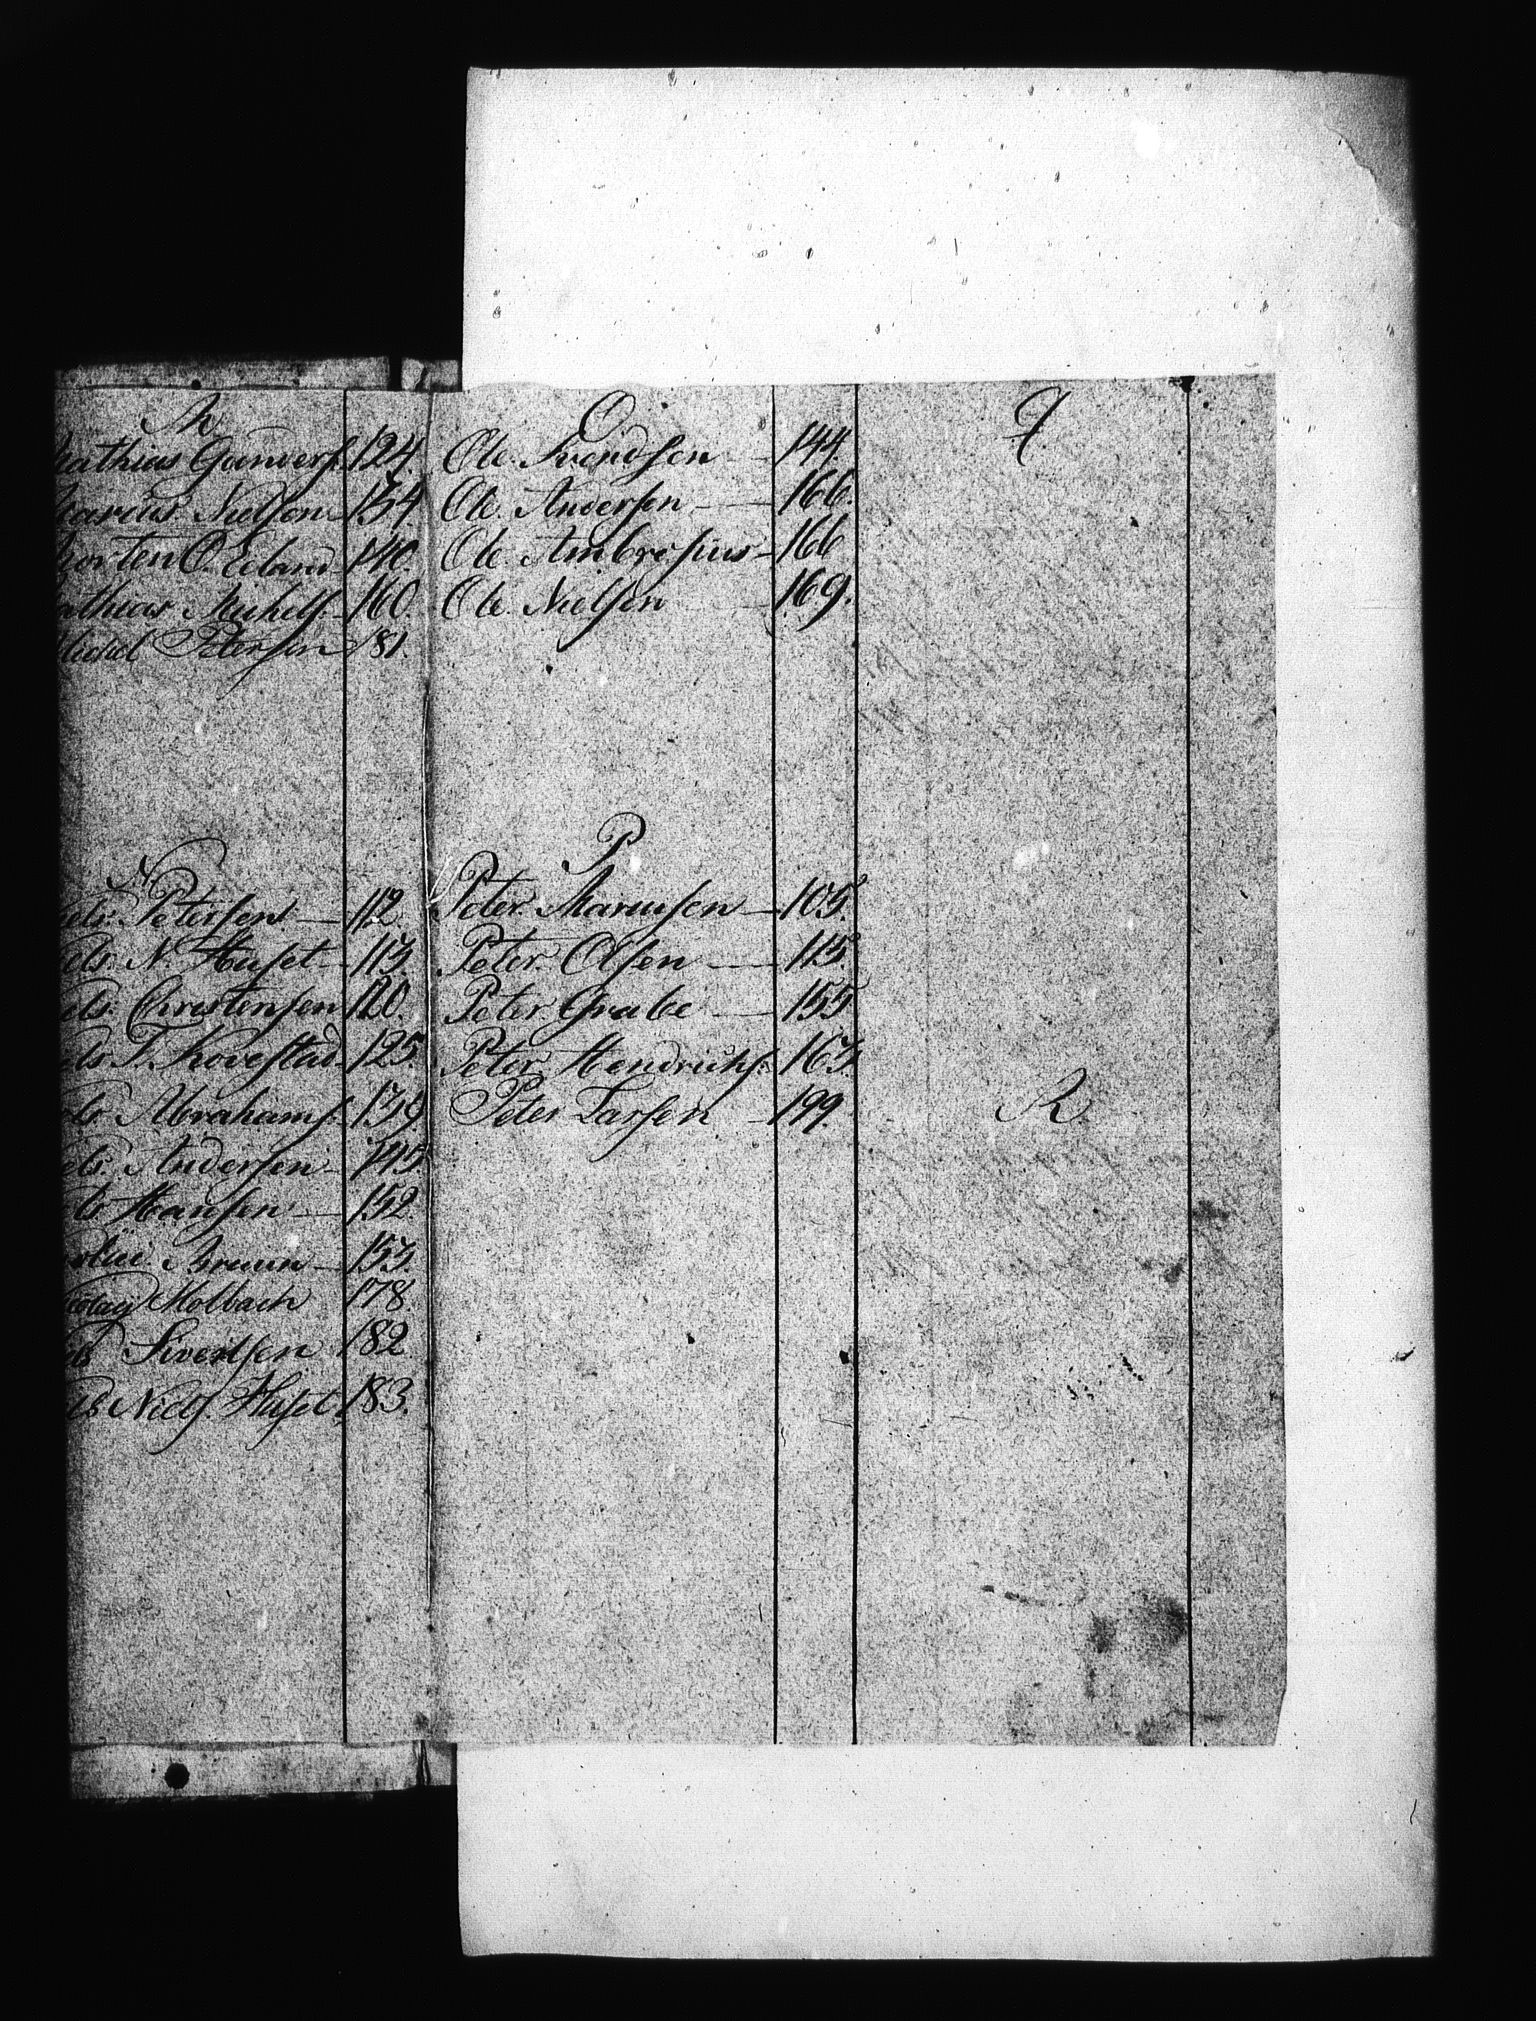 M
athias Gunders. 124.
arcus Nielsen 134.
orten O. Eeland 140.
athias Michels. 160.
ichel Petersen 181.
N
iels Petersen 112
els N. Huset 113.
els Christensen 120.
els T. Skovestad 125.
els Abrahams. 139
els Andersen 145.
ls Hansen 152.
Bruun 153.
icolay Holbach 178.
els Sivertsen 182
els Niels. Huset. 183.
O
Ole Svendsen 144.
Ole Andersen 166.
Ole Ambrosius 166
Ole Nielsen 169.
P
Peter Mariusen 105.
Peter Olsen 115.
Peter Grabe 155
Peter Hendrichs. 163.
Peter Larsen 199.
Q
R